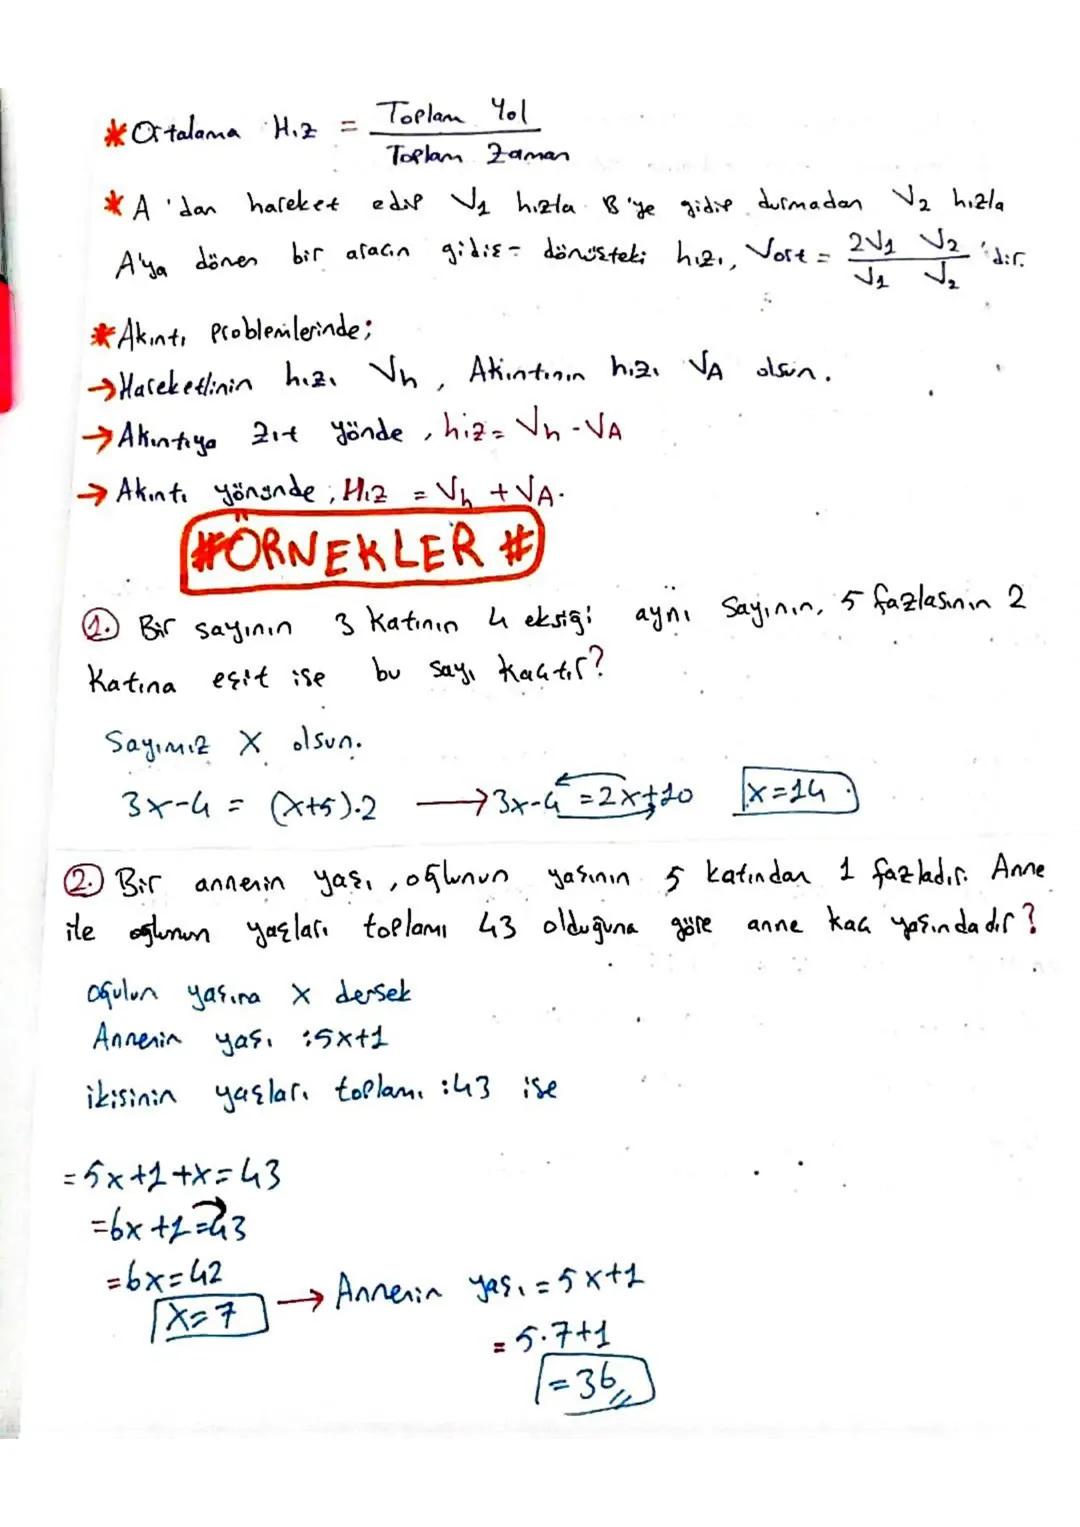 *Ortalama Hız = Toplam Yol / Toplam Zaman
*A'dan hareket edip V1 hızla B'ye gidip durmadan V2 hızla
A'ya dönen bir aracın gidiş-dönüşteki hızı, Vort = 2V1 V2 / V1 V2 'dir.
*Akıntı Problemlerinde;
→Hareketlinin hızı Vh, Akıntının hızı VA olsun.
→Akıntıya zıt yönde, hız = Vh - VA
→Akıntı yönünde; Hız = Vh + VA.
#ÖRNEKLER #
1. Bir sayının 3 katının 4 eksiği aynı sayının, 5 fazlasının 2
katına eşit ise bu sayı kaçtır?
Sayımız X olsun.
3x-4 = (x+5).2 → 3x-4 = 2x+10 x=14
2. Bir annenin yaşı, oğlunun yaşının 5 katından 1 fazladır. Anne
ile oğlunun yaşları toplamı 43 olduğuna göre anne kaç yaşındadır?
oğulun yaşına x dersek
Annenin yaşı :5x+1
ikisinin yaşları toplamı :43 ise
=5x+1+x=43
=6x+1=43
=6x=42
x=7 → Annenin yaşı = 5x+1
= 5.7+1
=36